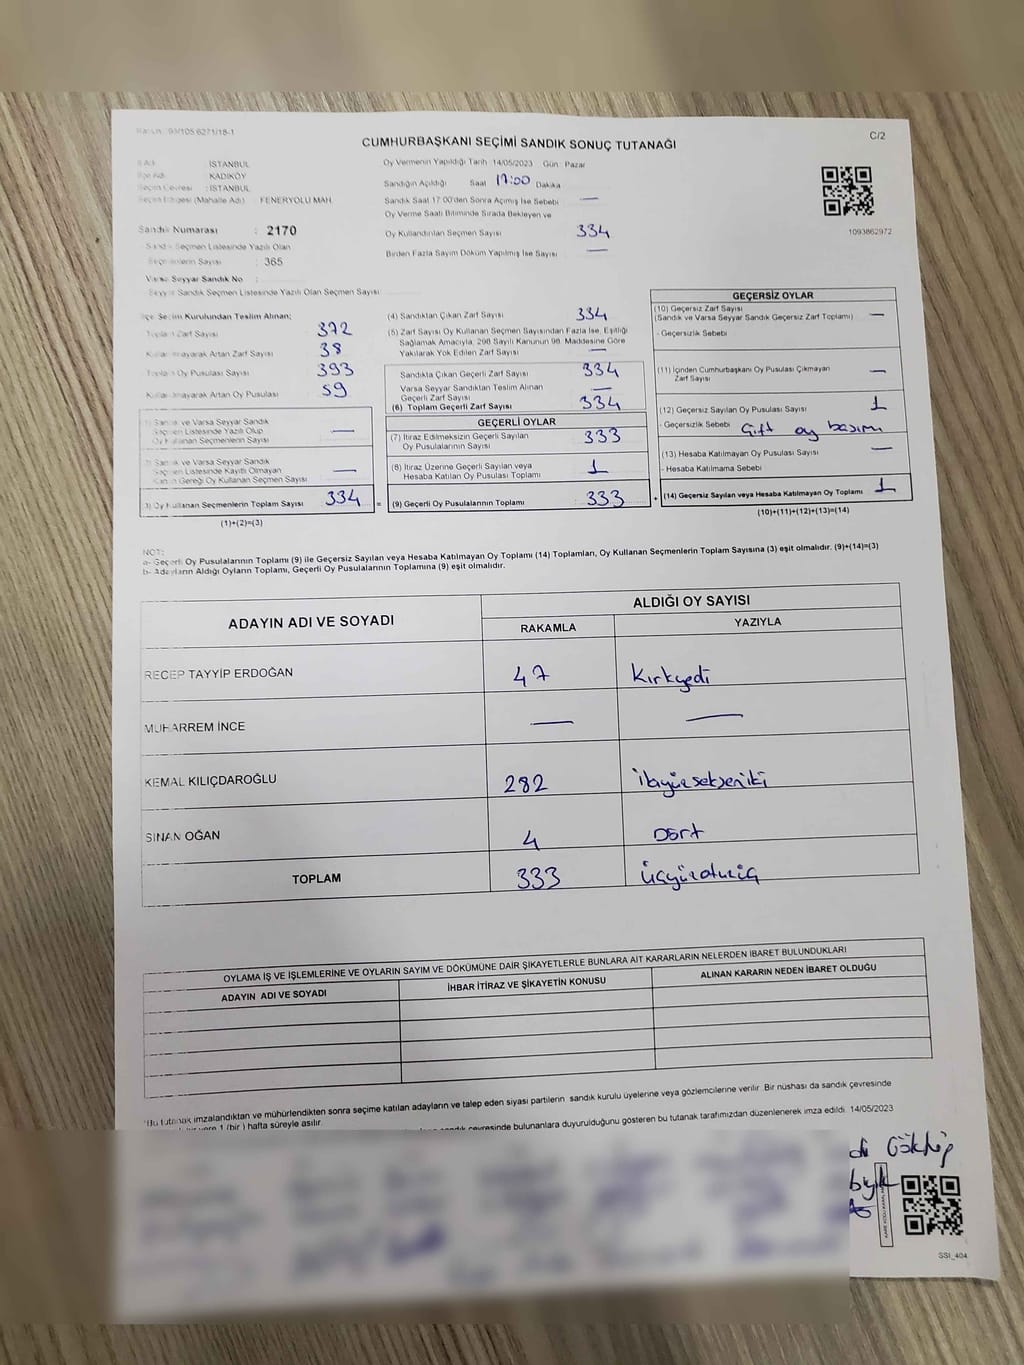 93/105.6271/18-1
C/2
CUMHURBAŞKANI SEÇİMİ SANDIK SONUÇ TUTANAĞI
İl Adı : İSTANBUL
İlçe Adı : KADIKÖY
Seçim Çevresi : İSTANBUL
Seçim Bölgesi (Mahalle Adı) FENERYOLU MAH.
Sandık Numarası : 2170
Sandık Seçmen Listesinde Yazılı Olan
Seçmenlerin Sayısı : 365
Varsa Seyyar Sandık No :
Seyyar Sandık Seçmen Listesinde Yazılı Olan Seçmen Sayısı
Oy Vermenin Yapıldığı Tarih 14/05/2023 Gün: Pazar
Sandığın Açıldığı Saat 17:00 Dakika
Sandık Saat 17:00'den Sonra Açılmış İse Sebebi —
Oy Verme Saati Bitiminde Sırada Bekleyen ve
Oy Kullandırılan Seçmen Sayısı 334
Birden Fazla Sayım Döküm Yapılmış İse Sayısı —
1093862972
İlçe Seçim Kurulundan Teslim Alınan;
Toplam Zarf Sayısı 372
Kullanılmayarak Artan Zarf Sayısı 38
Toplam Oy Pusulası Sayısı 393
Kullanılmayarak Artan Oy Pusulası 59
(1) Sandık ve Varsa Seyyar Sandık
Seçmen Listesinde Yazılı Olup
Oy Kullanan Seçmenlerin Sayısı —
(2) Sandık ve Varsa Seyyar Sandık
Seçmen Listesinde Kayıtlı Olmayan
Kanun Gereği Oy Kullanan Seçmen Sayısı —
(3) Oy Kullanan Seçmenlerin Toplam Sayısı 334 =
(1)+(2)=(3)
(4) Sandıktan Çıkan Zarf Sayısı 334
(5) Zarf Sayısı Oy Kullanan Seçmen Sayısından Fazla İse, Eşitliği
Sağlamak Amacıyla, 298 Sayılı Kanunun 98. Maddesine Göre
Yakılarak Yok Edilen Zarf Sayısı —
Sandıkta Çıkan Geçerli Zarf Sayısı 334
Varsa Seyyar Sandıktan Teslim Alınan
Geçerli Zarf Sayısı —
(6) Toplam Geçerli Zarf Sayısı 334
GEÇERLİ OYLAR
(7) İtiraz Edilmeksizin Geçerli Sayılan
Oy Pusulalarının Sayısı 333
(8) İtiraz Üzerine Geçerli Sayılan veya
Hesaba Katılan Oy Pusulası Toplamı 1
(9) Geçerli Oy Pusulalarının Toplamı : 333 +
GEÇERSİZ OYLAR
(10) Geçersiz Zarf Sayısı
(Sandık ve Varsa Seyyar Sandık Geçersiz Zarf Toplamı) —
- Geçersizlik Sebebi
(11) İçinden Cumhurbaşkanı Oy Pusulası Çıkmayan
Zarf Sayısı —
(12) Geçersiz Sayılan Oy Pusulası Sayısı 1
- Geçersizlik Sebebi Çift oy basımı
(13) Hesaba Katılmayan Oy Pusulası Sayısı —
- Hesaba Katılmama Sebebi
(14) Geçersiz Sayılan veya Hesaba Katılmayan Oy Toplamı 1
(10)+(11)+(12)+(13)=(14)
NOT:
a- Geçerli Oy Pusulalarının Toplamı (9) ile Geçersiz Sayılan veya Hesaba Katılmayan Oy Toplamı (14) Toplamları, Oy Kullanan Seçmenlerin Toplam Sayısına (3) eşit olmalıdır. (9)+(14)=(3)
b- Adayların Aldığı Oyların Toplamı, Geçerli Oy Pusulalarının Toplamına (9) eşit olmalıdır.
ADAYIN ADI VE SOYADI
ALDIĞI OY SAYISI
RAKAMLA YAZIYLA
RECEP TAYYİP ERDOĞAN 47 Kırkyedi
MUHARREM İNCE — —
KEMAL KILIÇDAROĞLU 282 ikiyüzsekseniki
SİNAN OĞAN 4 Dört
TOPLAM 333 Üçyüzotuzüç
OYLAMA İŞ VE İŞLEMLERİNE VE OYLARIN SAYIM VE DÖKÜMÜNE DAİR ŞİKAYETLERLE BUNLARA AİT KARARLARIN NELERDEN İBARET BULUNDUKLARI
ADAYIN ADI VE SOYADI İHBAR İTİRAZ VE ŞİKAYETİN KONUSU ALINAN KARARIN NEDEN İBARET OLDUĞU
"Bu tutanak imzalandıktan ve mühürlendikten sonra seçime katılan adayların ve talep eden siyasi partilerin sandık kurulu üyelerine veya gözlemcilerine verilir. Bir nüshası da sandık çevresinde
1 (bir) hafta süreyle asılır.
sandık çevresinde bulunanlara duyurulduğunu gösteren bu tutanak tarafımızdan düzenlenerek imza edildi. 14/05/2023
SSI_404